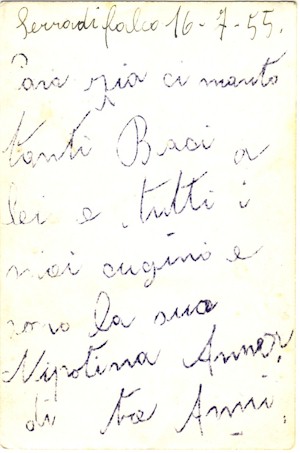 Serradifalco 16-7-55.
Cara zia ci manto
tanti Baci a
lei e tutti i
miei cugino e
sono la sua
Nipotina Anna
di tre Anni